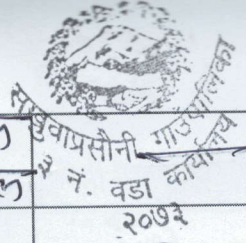 सखुवाप्रसौनी गाउँपालिका
३ नं. वडा कार्यालय
२०७३